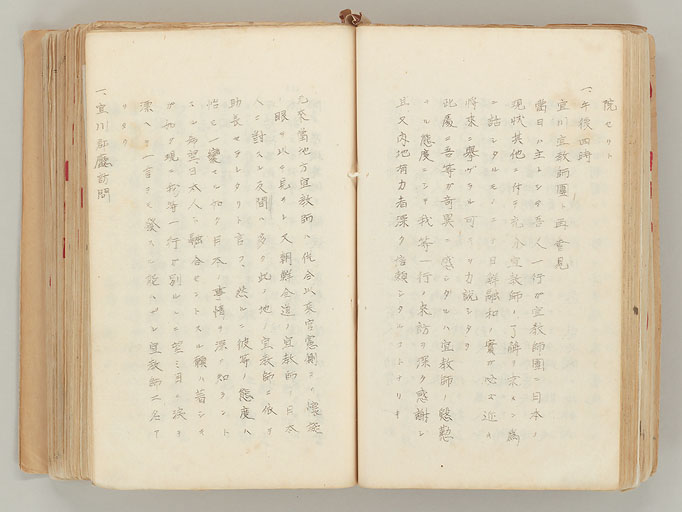 院セリト
一、午後四時
宣川宣教師團ト再會見
當日ハ主トシテ吾人一行ガ宣教師團ニ日本ノ
現状其他ニ付キ充分宣教師ノ了解ヲ求メン為
ニ詰シタルモノニシテ日鮮融和ノ實ガ必ズ近キ
將來ニ擧ゲラル可キヲ力説シタリ
此處ニ吾等ガ奇異ニ感ジタルハ宣教師ノ慇懃
ナル態度ニシテ我等一行ノ來訪ヲ深ク感謝シ
且又内地有力者深ク信頼シタルコトナリキ
元來當地方宣教師ハ併合以來官憲側ヨリ懐疑
ノ眼ヲ以テ見ラレ又朝鮮全道ノ宣教師ノ日本
人ニ對スル反間ハ多ク此ノ地ノ宣教師ニ依テ
助長セラレタリト言フ、然ルニ彼等ノ態度ハ
恰モ一變セル如ク日本ノ事情ヲ深ク知ラント
シ
日本人ニ融合セントスル
ガ如ク現ニ我等一行ガ別ルルニ望ミ目ニ涙ヲ
漂ヘテ一言ヲモ發スル能ハザル宣教師二名ア
リタリ
一、宣川郡廳訪問